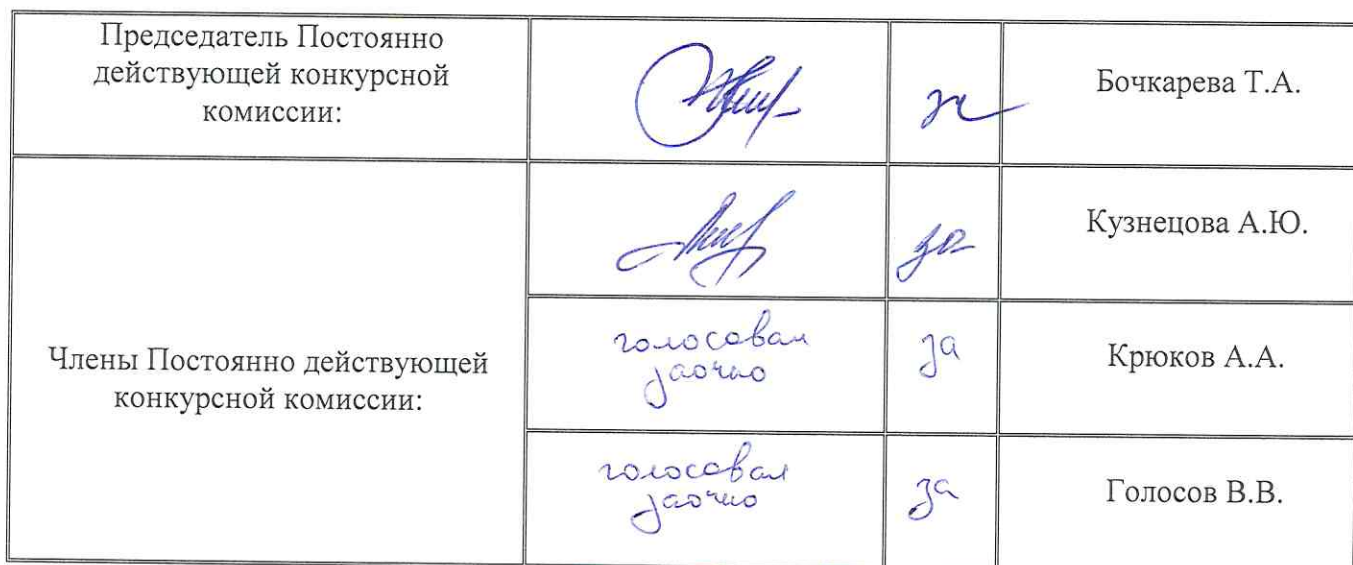 Председатель Постоянно
действующей конкурсной
комиссии:
за
Бочкарева Т.А.
за
Кузнецова А.Ю.
Члены Постоянно действующей
конкурсной комиссии:
голосовал
заочно
за
Крюков А.А.
голосовал
заочно
за
Голосов В.В.